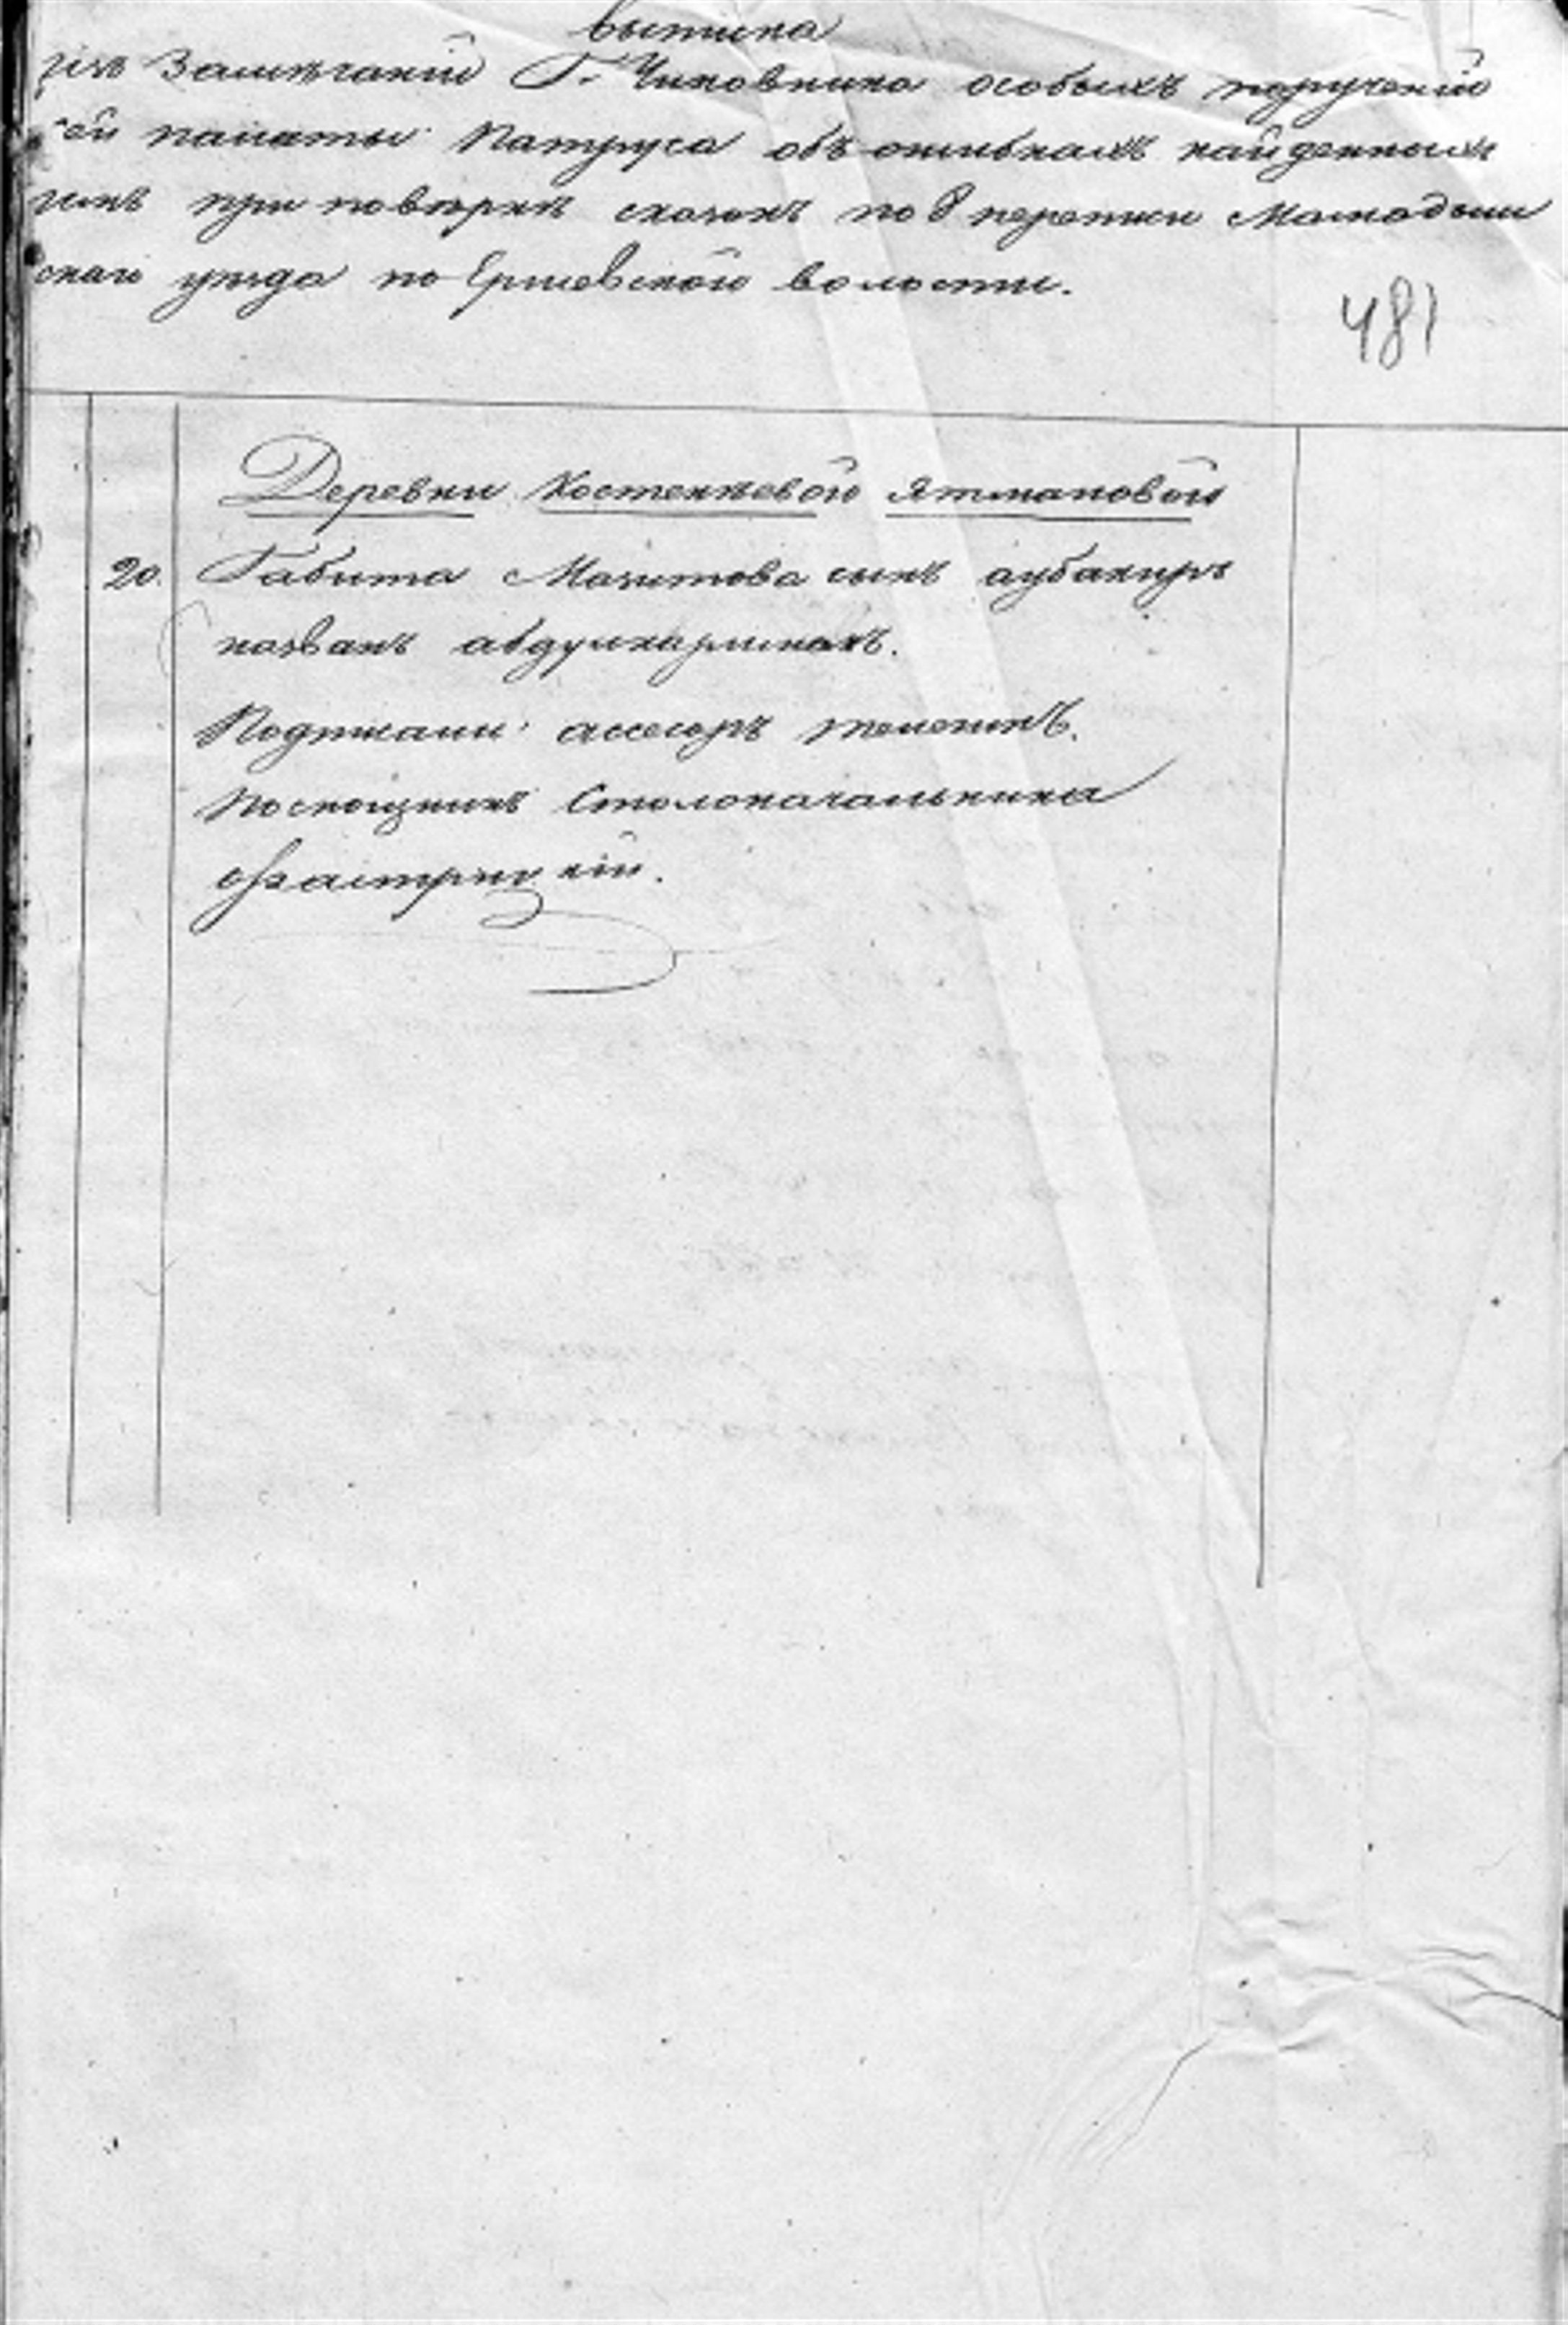 выписка
изъ Замѣчаній Г. Чиновника особыхъ порученій
ой палаты Патруса объ ошибкахъ найденныхъ
имъ при повѣркѣ сказокъ по 8 переписи Мамадыш
скаго уѣзда по Ершевской волости.
481
Деревни Костенѣевой Ятмановой
20. Габита Мазитова сынъ аубакиръ
названъ абдулкаримомъ.
Подписали: ассесоръ
Помощникъ Столоначальника